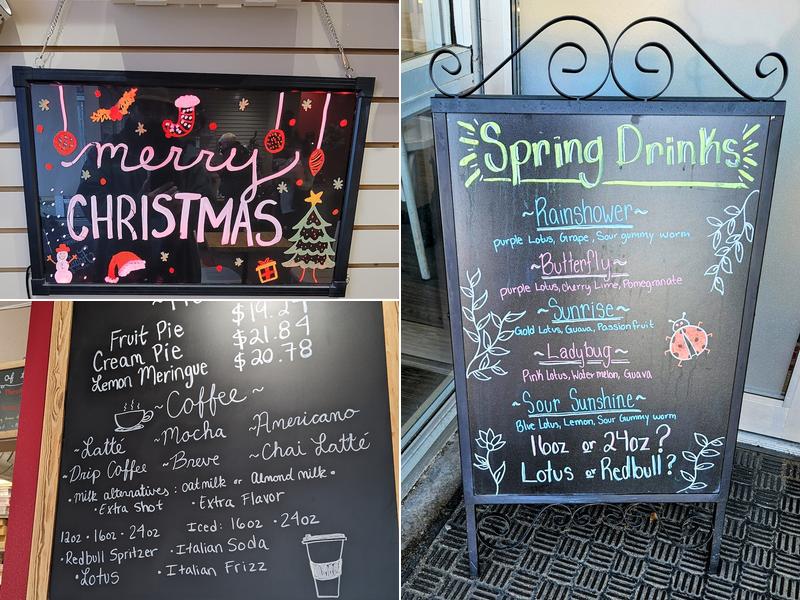 merry
CHRISTMAS
$19.27
Fruit Pie $21.84
Cream Pie $20.78
Lemon Meringue
~Coffee~
~Latté ~Mocha ~Americano
~Drip Coffee ~Breve ~Chai Latté
•Milk alternatives: oat milk or Almond milk•
•Extra Shot •Extra Flavor
12oz • 16oz • 24oz Iced: 16oz • 24oz
•Redbull Spritzer •Italian Soda
•Lotus •Italian Frizz
Spring Drinks
~Rainshower~
purple Lotus, Grape, Sour gummy worm
~Butterfly~
purple Lotus, Cherry, Lime, Pomegranate
~Sunrise~
Gold Lotus, Guava, Passionfruit
~Ladybug~
Pink Lotus, Watermelon, Guava
~Sour Sunshine~
Blue Lotus, Lemon, Sour Gummy worm
16oz or 24oz?
Lotus or Redbull?